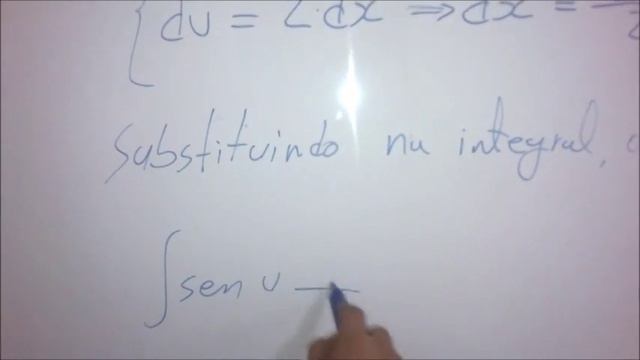 du = 2·dx ⇒ dx =
Substituindo na integral,
∫ sen u